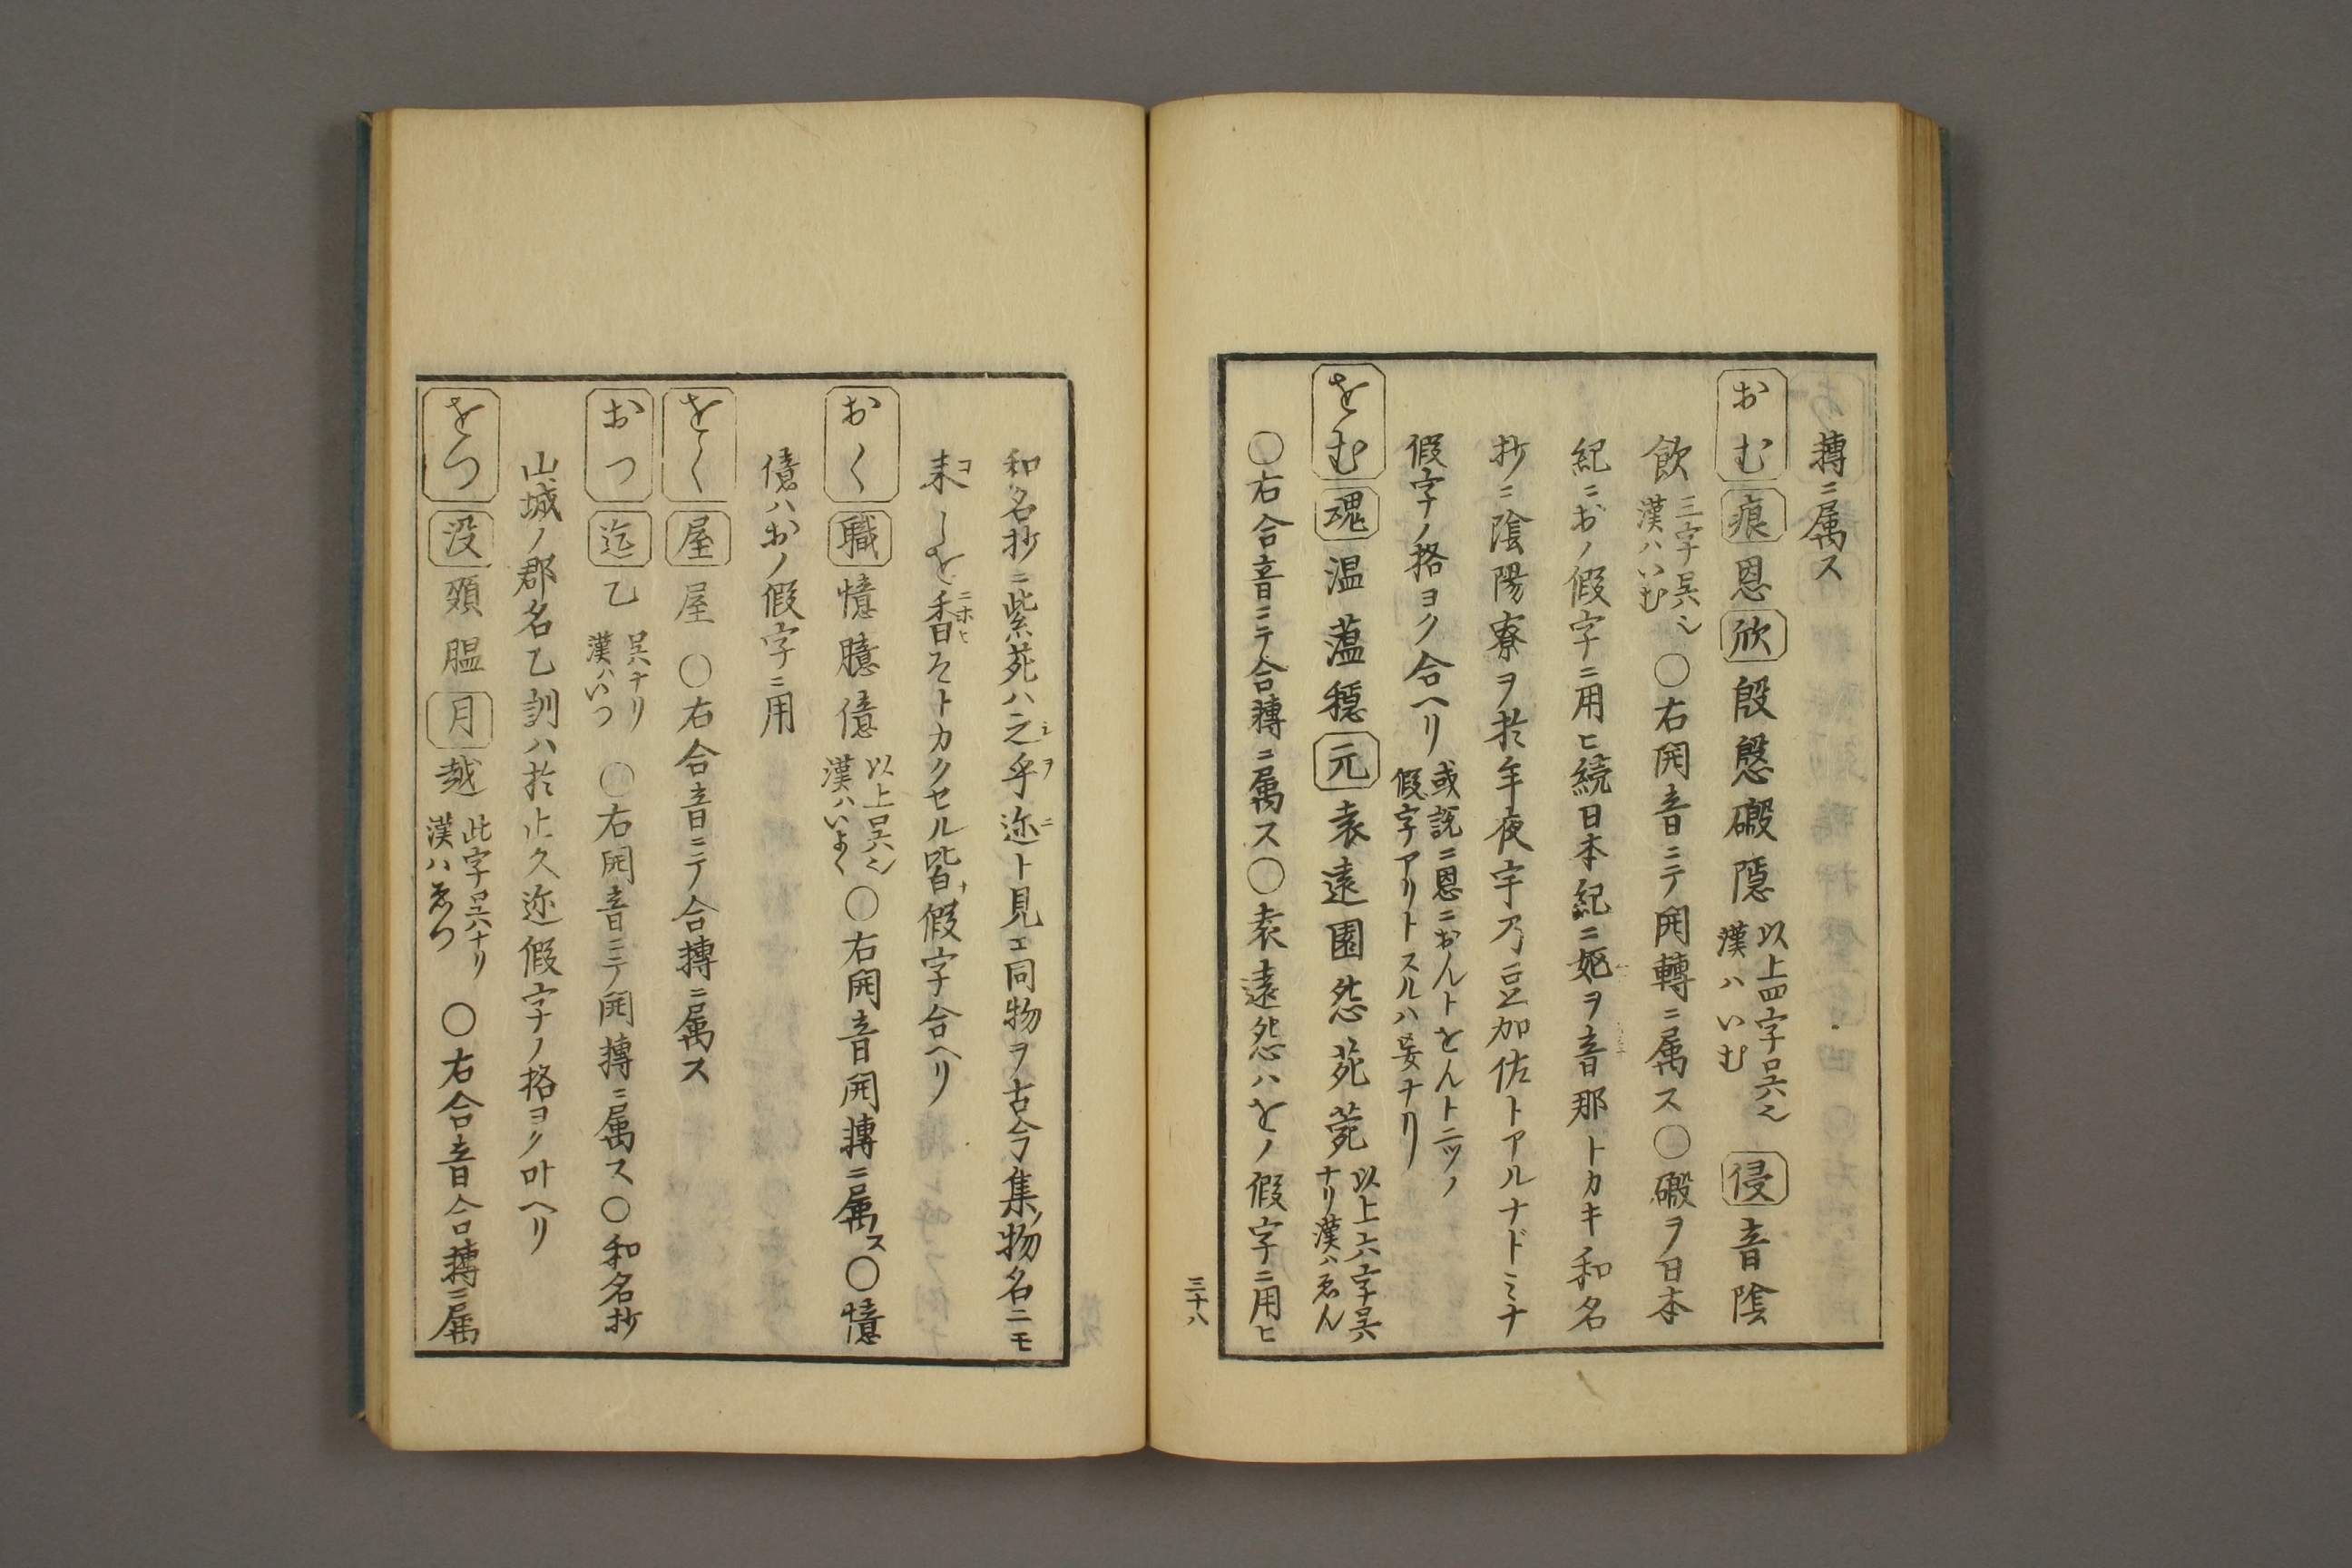 轉ニ属ス
おむ 痕 恩 欣 殷 慇 磤 隠 以上四字呉ハ〆 漢ハいむ 侵 音 陰
飲 三字呉ハ〆 漢ハいむ ○右開音ニテ開轉ニ属ス○磤ヲ日本
紀ニおノ假字ニ用ヒ続日本紀ニ
ヲ音那トカキ和名
抄ニ陰陽寮ヲ於牟夜宇乃豆加佐トアルナドミナ
假字ノ格ヨク合ヘリ 或説ニ恩ニおんトをんトニツノ 假字アリトスルハ妄ナリ
をむ 魂 温 薀 穏 元 袁 遠 園 怨 苑 菀 以上六字呉 ナリ漢ハゑん
○右合音ニテ合轉ニ属ス○袁遠怨ハをノ假字ニ用ヒ
三十八
和名抄ニ紫苑ハ之乎迩ト見エ同物ヲ古今集ノ物名ニモ
来しを香そトカクセル皆假字合ヘリ
おく 職 憶 臆 億 以上呉〆 漢ハいよく ○右開音開轉ニ属ス○憶
億ハおノ假字ニ用
をく 屋 屋 ○右合音ニテ合轉ニ属ス
おつ 迄 乙 呉ナリ 漢ハいつ ○右開音ニテ開轉ニ属ス○和名抄
山城ノ郡名乙訓ハ於止久迩假字ノ格ヨク叶ヘリ
をつ 没 頞 膃 月 越 此字呉ナリ 漢ハゑつ ○右合音合轉ニ属